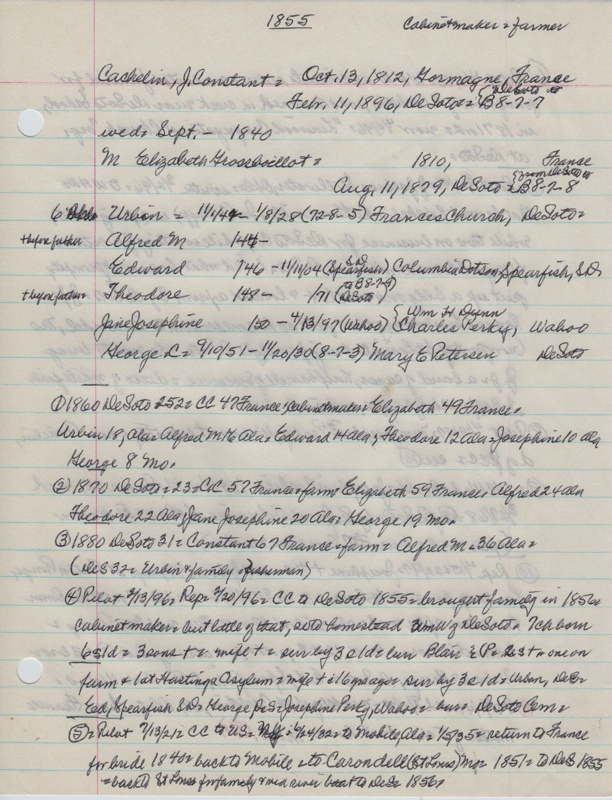 1855
Cabinetmaker & farmer
Cachelin, J. Constant = Oct. 13, 1812, France
Feb. 11, 1896, DeSoto = B8-7-7
wed = Sept. - 1840
M Elizabeth Grosboillot = 1810, France
Aug. 11, 1879, DeSoto = B-8-7-8
6 Urbin = 1/1/42 - 1/8/28 (728-5) Frances Church, DeSoto =
+ before father Alfred M 144-
Edward 146 - 11/11/04 (Spearfish) S.D. Columbia Dotson, Spearfish, S.D.
+ before father Theodore 148- 171 (B8-7-9) (DeSoto)
Jane Josephine 150 - 4/13/97 (Wahoo) { Wm H Dunn
Charles Perky, Wahoo
George L = 9/10/51 - 11/20/30 (8-7-3) Mary E Petersen DeSoto
① 1860 DeSoto 252 = CC 47 France = cabinetmaker = Elizabeth 49 France =
Urbin 18, Ala = Alfred M 16 Ala = Edward 14 Ala = Theodore 12 Ala = Josephine 10 Ala
George 8 Mo.
② 1870 DeSoto = 23 = CC 57 France = farm = Elizabeth 59 France = Alfred 24 Ala
Theodore 22 Ala = Jane Josephine 20 Ala = George 19 Mo.
③ 1880 DeSoto 31 = Constant 67 France = farm = Alfred M = 36 Ala =
(DeS 32 = Urbin & family = fisherman)
④ Pilot 2/13/96 = Rep = 2/20/96 = CC to DeSoto 1855 = brought family in 1856 =
cabinetmaker = but little of that, so to homestead 3 mi W of DeSoto = 7ch born
6 s 1 d = 3 sons + = wife + = sur by 3 s 1 d = bur Blair = P = 2 s + = one on
farm & 1 at Hastings Asylum = wife + 16 yrs ago = sur by 3 s 1 d = Urbin, DeS =
Ed, Spearfish S.D. = George, DeS = Josephine Perky, Wahoo = bur = DeSoto Cem =
⑤ = Pilot 7/13/21 = CC to US = 4/24/32 = to Mobile, Ala = 1/5/35 = return to France
for bride 1840 = back to Mobile = to Carondell (St Louis) Mo = 1851 = to DeS 1855
= back to St Louis for family & via river boat to DeS = 1856 =